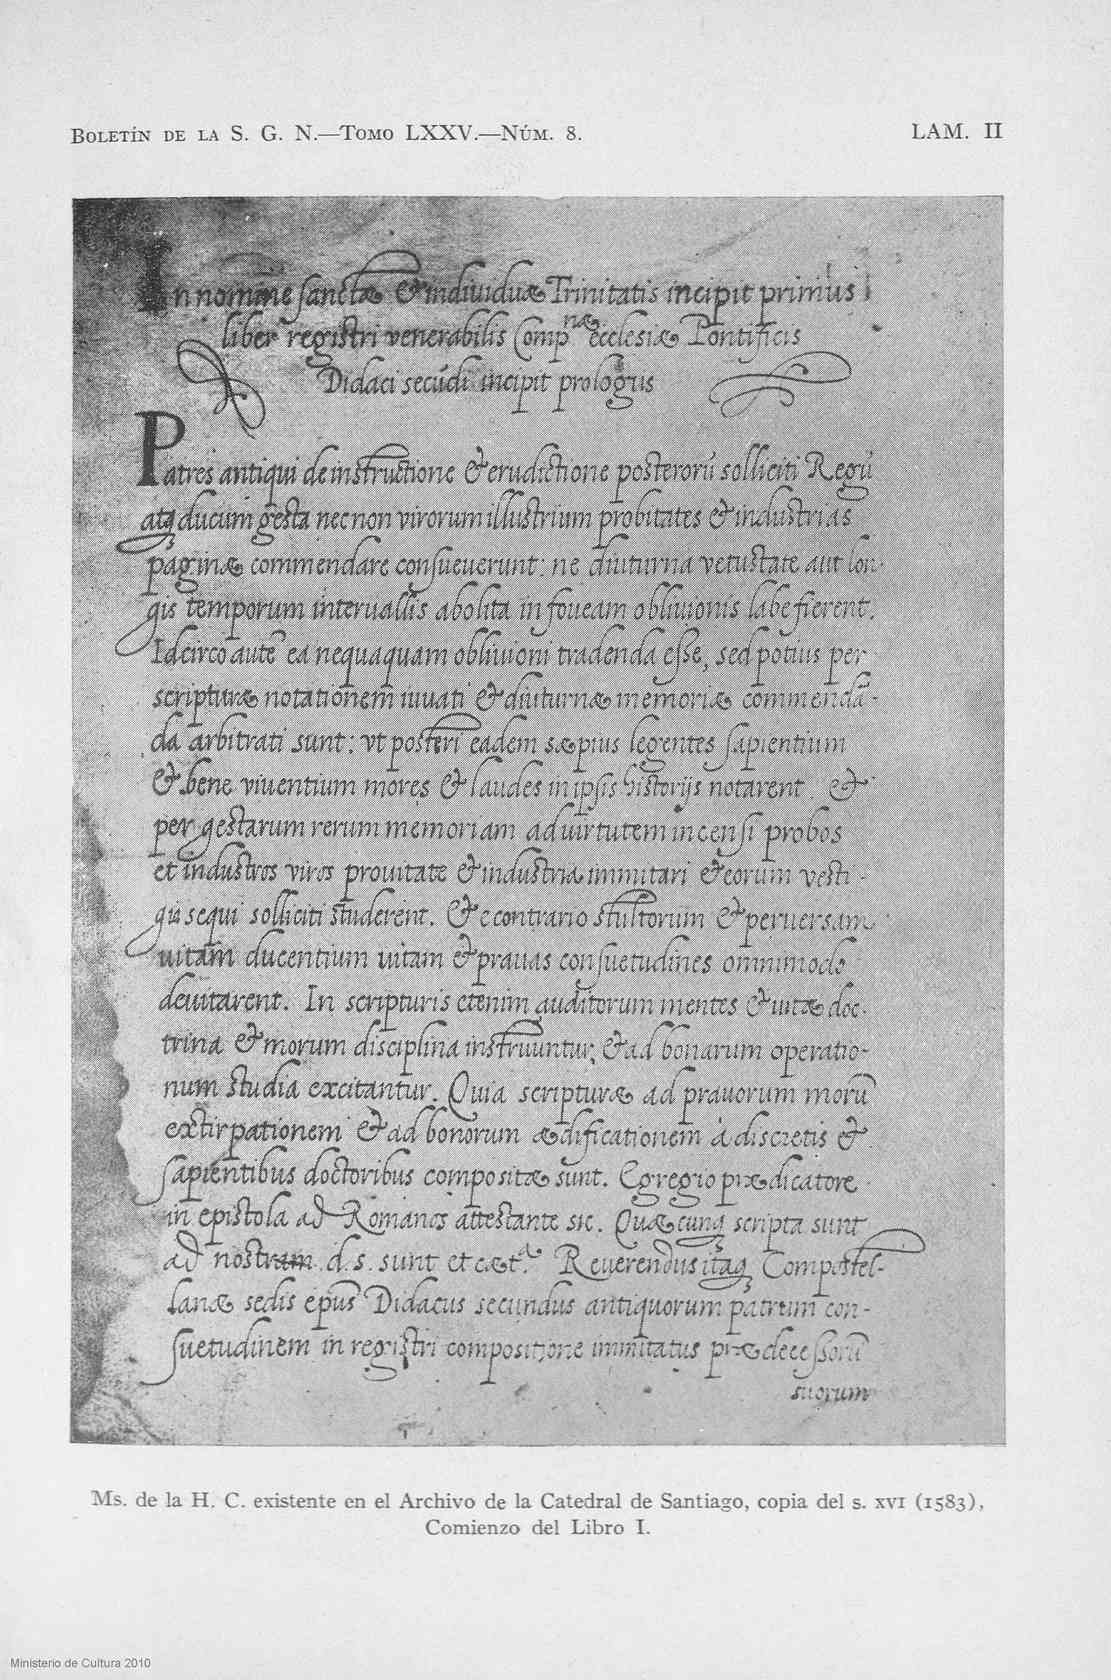 BOLETÍN DE LA S. G. N.—TOMO LXXV.—NÚM. 8.
LAM. II
In nomine sanctæ & individuæ Trinitatis incipit primus
liber registri venerabilis Compnæ ecclesiæ Pontificis
Didaci secūdi incipit prologus
Patres antiqui de instructione & eruditione posterorū solliciti Regū
atq ducum gesta necnon virorum illustrium probitates & industrias
paginæ commendare consueuerunt: ne diuturna vetustate aut lon-
gis temporum interuallis abolita in foueam obliuionis labefierent.
Idcirco autē ea nequaquam obliuioni tradenda esse, sed potius per
scripturæ notationem iuuati & diuturnæ memoriæ commendā-
da arbitrati sunt: vt posteri eadem sæpius legentes sapientium
& bene viuentium mores & laudes in ipsis historijs notarent &
per gestarum rerum memoriam ad uirtutem incensi probos
et industros viros prouitate & industria immitari & eorum vesti-
gia sequi solliciti studerent. & e contrario stultorum & peruersam
uitam ducentium uitam & prauas consuetudines omnimodo
deuitarent. In scripturis etenim auditorum mentes & uitæ doc-
trina & morum disciplina instruuntur, & ad bonarum operatio-
num studia excitantur. Quia scripturæ ad prauorum morū
extirpationem & ad bonorum ædificationem à discretis &
sapientibus doctoribus compositæ sunt. Egregio prædicatore
in epistola ad Romanos attestante sic. Quæcunq scripta sunt
ad nostram d.s. sunt et cæt.a Reuerendus itaq Compostel-
lanæ sedis epūs Didacus secundus antiquorum patrum con-
suetudinem in registri compositione immitatus prædecessorū
suorum
Ms. de la H. C. existente en el Archivo de la Catedral de Santiago, copia del s. XVI (1583),
Comienzo del Libro I.
Ministerio de Cultura 2010